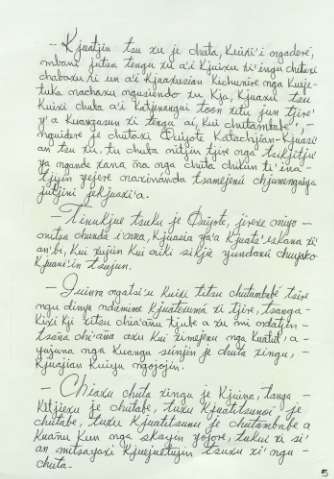 — Kjuatjin tsu xu je chuta, Keüxi'i ngaderë,
mbane jutsa tengu xu a'i Kjuixu xi'ingu chutaxi
chabaxu xi un a'i Kjaaxusian Kuchunire nga Kuije-
tuka nachaxu ngusiundo xu Kja, Kjuaxu tsu
Kuixi chuta a'i Katjenangui toon xitu jun tjire'
y'a Kuangasun xi tengu ai, Kui chutambabe', –
nguidere je chutaxi Quijote Katachjian-Kjuasi'
an tsu xu. tu chuta mitjun tjire nga tukjitju'
ya ngande xana ma nga chuta chukun ti'ina-
tjijin yejere maximanda tsamejenu chjumingaya
jutjini jekjuaxi'a.
— Tenukjue tsuku je Quijote, jirexe miyo –
mitsa chunda i'ama, Kjuasia ya'a Kjuata'skana xi'
an'be, Kui xujun Kui aiki sikje yundami chujsko
Kjuani'in tsujun.
— Juinra ngatsi'u Kuixi titsu chutambabe tsire
ngu dinya ndamina Kjuatexuma xi tjire, tsanga-
Kixi Kji xitsu chia'añu tjuke a xu mi ndatjen-
tsana chi'aña axu Kui ximejenu nga Kuatut, a-
yujuna nga Kuangu sunjin je chuta xingu, –
Kjuajian Kuiyu ngojojin.
— Chiaxu chuta xingu je Kjuina, tanga –
Ketjiexu je chutabe, tuxu Kjuatitsunoi' je
chutabe, tuxu Kjuatitsunu je chutambabe a
Kuañu Kun nga skayen yojore, tukui xi si'
an mitsayaxi Kjuejnetujin tsuxu xi' ngu –
chuta.
5